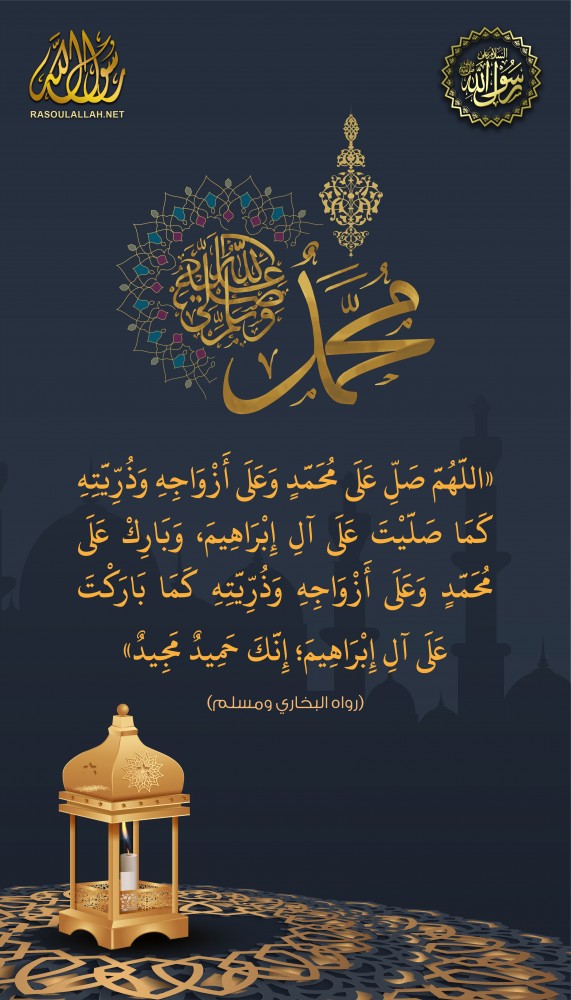 رسول الله
RASOULALLAH.NET
السلام على
رسول الله
محمد
صلى الله عليه وسلم
«اللّهُمّ صَلِّ عَلَى مُحَمّدٍ وَعَلَى أَزْوَاجِهِ وَذُرِّيّتِهِ
كَمَا صَلّيْتَ عَلَى آلِ إِبْرَاهِيمَ، وَبَارِكْ عَلَى
مُحَمّدٍ وَعَلَى أَزْوَاجِهِ وَذُرِّيّتِهِ كَمَا بَارَكْتَ
عَلَى آلِ إِبْرَاهِيمَ؛ إِنّكَ حَمِيدٌ مَجِيدٌ»
(رواه البخاري ومسلم)